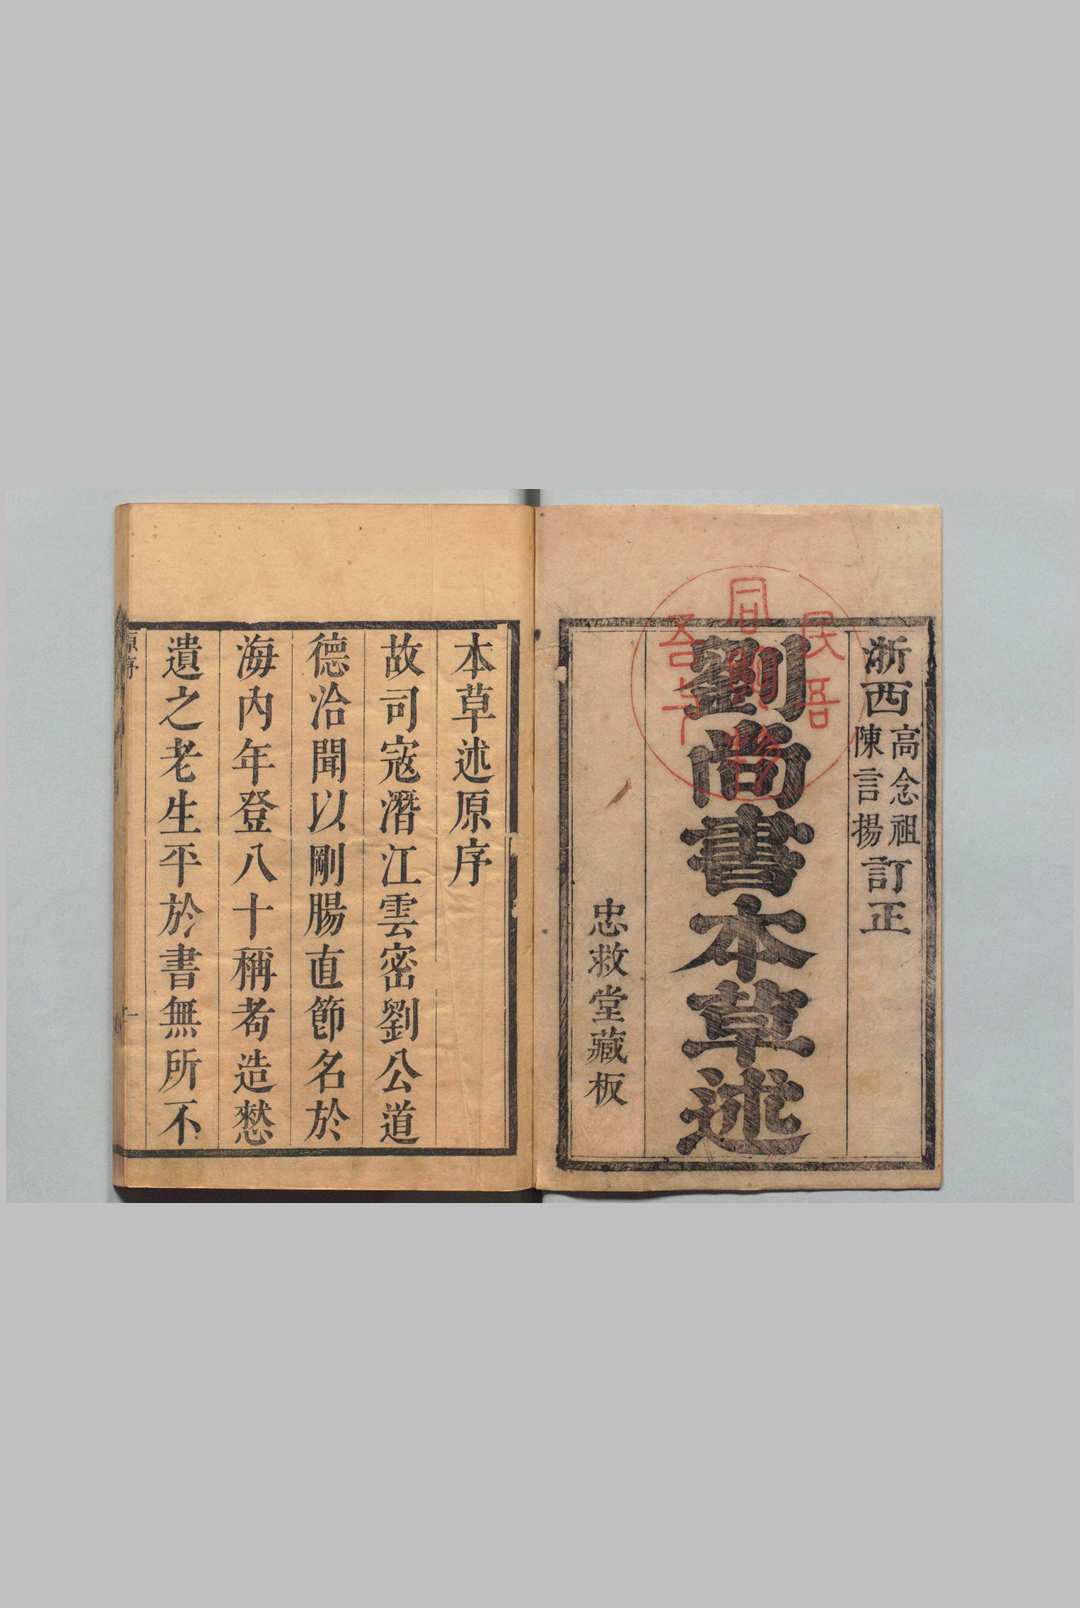 浙西
高念祖
陳言揚
訂正
劉尚書本草述
忠救堂藏板
本草述原序
故司寇潛江雲密劉公道
德洽聞以剛腸直節名於
海內年登八十稱耇造憖
遺之老生平於書無所不
原序
一